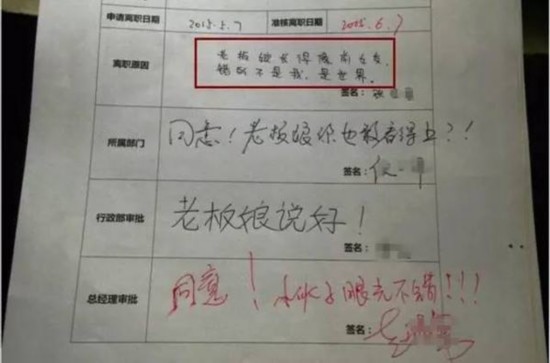 申请离职日期 2015.5.7 准核离职日期 2015.6.7
老板娘长得像前女友,
离职原因
错的不是我,是世界。
签名:
同意!老板娘你也敢看得上?!
所属部门
签名:
行政部审批 老板娘说好!
签名:
同意!小伙子眼光不错!!!
总经理审批
签名: